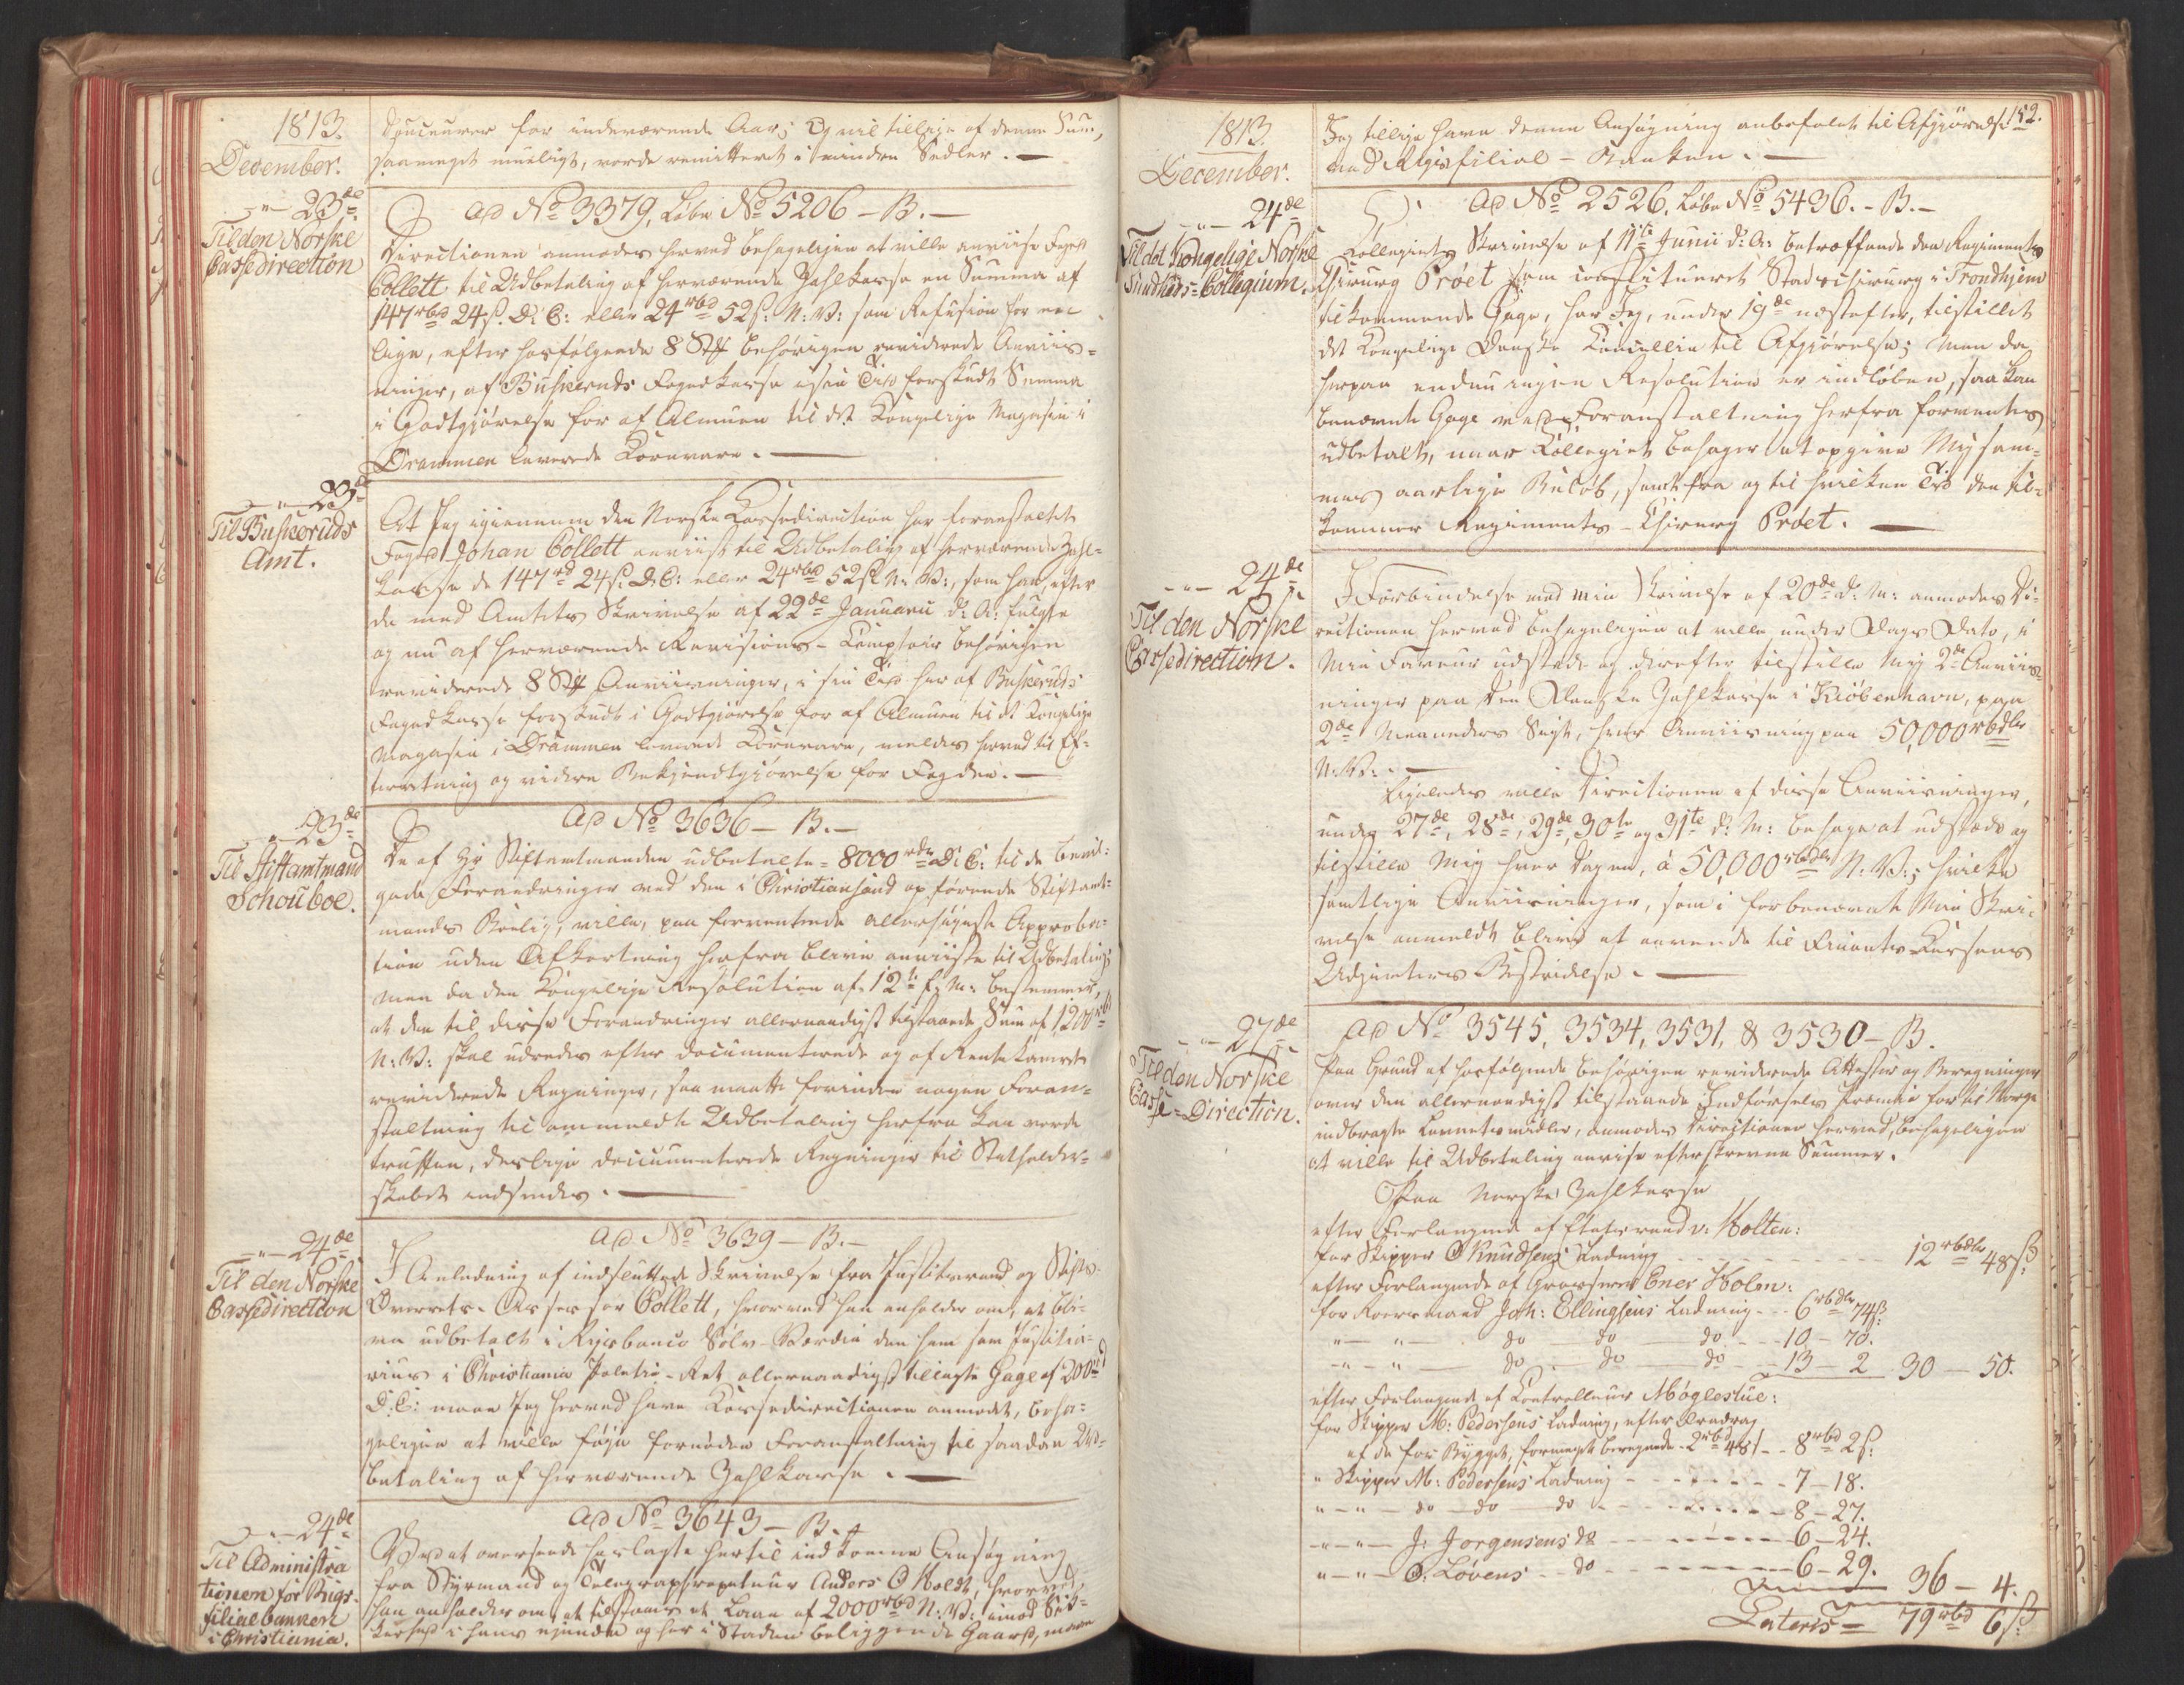 1813.
December.
Douceurer for indeværende Aar; og vil tillige af denne Sum,
saameget mueligt, vorde remitteret i mindre Sedler. —
— " — 23de
Til den Norske
Cassedirection
ad No 3379, Løbe No 5206 — B. —
Directionen anmodes herved behageligen at ville anviise Foged
Collett til Udbetaling af herværende Zahlkasse en Summa af
147 rbd 24 s. D: C: eller 24 rbd 52 s: N: V: som Refusion for en
lige, efter hosfølgende 8 Stk behørigen reviderede Anviis-
ninger, af Buskeruds Fogedkasse i sin Tid forskudt Summa
i Godtgjørelse for af Almuen til det Kongelige Magasin i
Drammen leverede Kornvare. —
— " — 23de
Til Buskeruds
Amt.
At Jeg igiennem den Norske Kassedirection har foranstaltet
Foged Johan Collett anviist til Udbetaling af herværende Zahl-
kasse de 147 rd 24 s. D: C: eller 24 rbd 52 s. N: V:, som han, efter
de med Amtets Skrivelse af 22de Januarii d: A: fulgte
og nu af herværende Revisions-Comptoir behørigen
reviderede 8 Stk Anviisninger, i sin Tid har af Buskeruds
Fogedkasse forskudt i Godtgjørelse for af Almuen til det Kongelige
Magasin i Drammen leverede Kornvare, meldes herved til Ef-
terretning og videre Bekjendtgjørelse for Fogden. —
— " — 23de
Til Stiftamtmand
Schouboe.
ad No 3636 — B. —
De af Hr Stiftamtmanden udbetalte 8000 rdr D: C: til de bevil-
gede Forandringer ved den i Christiansand opførende Stiftamt-
mands Bolig, ville, paa forventende allerhøieste Approba-
tion uden Afkortning herfra blive anviiste til Udbetaling;
men da den Kongelige Resolution af 12te f: M: bestemmer,
at den til disse Forandringer allernaadigst tilstaaede Sum af 1200 rbd
N: V: skal udredes efter documenterede og af Rentekammeret
reviderede Regninger, saa maatte forinden nogen Foran-
staltning til ommeldte Udbetaling herfra kan vorde
truffen, deslige documenterede Regninger til Statholder-
skabet indsendes. —
— " — 24de
Til den Norske
Cassedirection
ad No 3639 — B. —
I Anledning af indsluttede Skrivelse fra Justitsraad og Stifts-
Overrets-Assessor Collett, hvorved han anholder om, at bli-
ve udbetalt i Rigsbanco Sølv-Værdie den ham som Justitia-
rius i Christiania Politie-Ret allernaadigst tillagte Gage af 200 rd
D: C: maae Jeg herved have Kassedirectionen anmodet, beha-
geligen at ville føie fornøden Foranstaltning til saadan Ud-
betaling af herværende Zahlkasse. —
— " — 24de
Til Administra
tionen for Rigs-
filialbanken
i Christiania.
ad No 3643 — B. —
Ved at oversende hoslagte hertil indkomne Ansøgning
fra Styrmand og Anders O Holdt, hvorved
han anholder om, at tilstaaes et Laan af 2000 rbd N: V: imod Sik-
kerhed i hans eiende og her i Staden beliggende Gaard, maae
152.
1813.
December.
Jeg tillige have denne Ansøgning anbefalet til Afgjørelse
ved Rigsfilial-Banken. —
— " — 24de
Til det Kongelige Norske
Sundheds-Collegium.
ad No 2526. Løbe No 5436. — B. —
Collegiets Skrivelse af 11te Junii d: A: betræffende den Regiments
Chirurg Pröet som constitueret Stadschirurg i Trondhjem
tilkommende Gage, har Jeg, under 19de næstefter, tilstillet
det Kongelige Danske Cancellie til Afgjørelse; men da
herpaa endnu ingen Resolution er indløben, saa kan
benævnte Gage ved Foranstaltning herfra formentes
udbetalt, naar Collegiet behager at opgive Mig sam-
mes aarlige Beløb, samt fra og til hvilken Tid den til-
kommer Regiments-Chirurg Pröet. —
— " — 24de
Til den Norske
Cassedirection.
I Forbindelse med min Skrivelse af 20de d: M: anmodes Di-
rectionen herved behageligen at ville under Dags Dato, i
min Faveur udstede og derefter tilstille Mig 2de Anviis-
ninger paa den Danske Zahlkasse i Kiöbenhavn, paa
2de Maaneders Sigt, hver Anviisning paa 50,000 rbdlr
N: V: —
Ligeledes ville Directionen af disse Anviisninger,
under 27de, 28de, 29de, 30te og 31te d: M: behage at udstæde og
tilstille Mig hver Dag en, à 50,000 rbdlr N: V:; hvilke
samtlige Anviisninger, som i forbenævnte Min Skri-
velse anmeldt, blive at anvende til Finants-Kassens
Udgivters Bestridelse. —
— " — 27de
Til den Norske
Casse-Direction.
ad No 3545, 3534, 3531, & 3530 — B.
Paa Grund af hosfølgende behørigen reviderede Attester og Beregninger
over den allernaadigst tilstaaede Indførsels Præmie for til Norge
indbragte Levnetsmidler, anmodes Directionen herved, behageligen
at ville til Udbetaling anvise efterskrevne Summer.
Paa Norske Zahlkasse
efter Forlangende af Etatsraad v: Holten:
for Skipper O Knudsens Ladning — 12 rbdlr 48 s:
efter Forlangende af Grosserer Ener Holm:
for Koersmand Joh: Ellingsens Ladning — 6 rbdlr 74 s
— " — " — do do do — 10 — 70.
— " — " — do do do — 13 — 2 30 — 50.
efter Forlangende af Controlleur Møglestue:
for Skipper M: Pedersens Ladning, efter Fradrag
af de for Bygget, formeget beregnede 2 rbd 48 s — 8 rbd 2 s:
" Skipper M: Pedersens Ladning — 7 — 18.
" — " — do — do — do — 8 — 27.
— " — " — J: Jorgensens do — 6 — 24.
" — " — O: Lövens — do — 6 — 29. 36 — 4.
Lateris — 79 rbd 6 s: